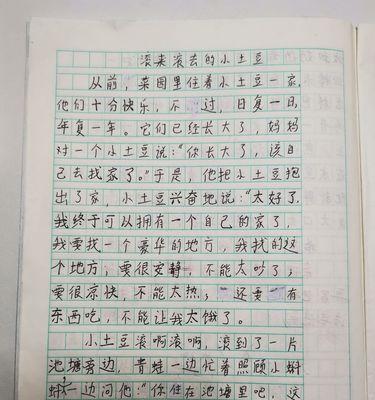 滚来滚去的小土豆
从前，菜园里住着小土豆一家，
他们十分快乐，不过，日复一日，
年复一年。它们已经长大了，妈妈
对一个小土豆说：“你长大了，该自
己去找家了。”于是，他把小土豆抱
出了家，小土豆兴奋地说：“太好了，
我终于可以拥有一个自己的家了，
我要找一个豪华的地方，我找的这
个地方，要很安静，不能太吵了；
要很凉快，不能太热；还要有
东西吃，不能让我太饿了。
小土豆滚啊滚啊，滚到了一片
池塘旁边，青蛙一边忙着照顾小蝌
蚪，一边问他：“你住在池塘里吧，这